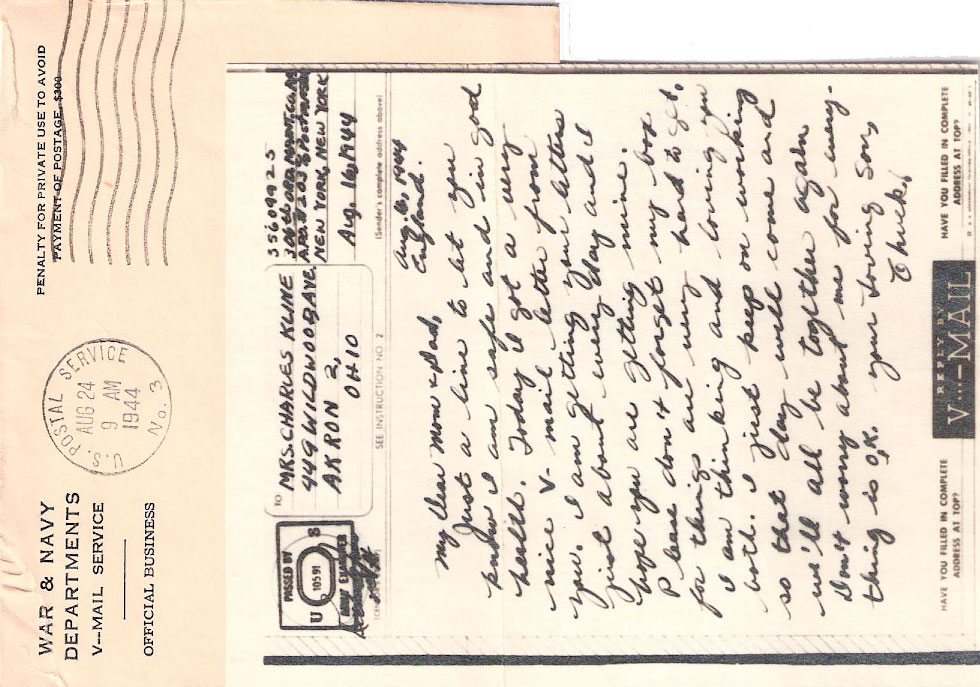 WAR & NAVY
DEPARTMENTS
V--MAIL SERVICE
OFFICIAL BUSINESS
U.S. POSTAL SERVICE
AUG 24
9 AM
1944
No. 3
PENALTY FOR PRIVATE USE TO AVOID
PAYMENT OF POSTAGE, $300
PASSED BY
U S
10591
ARMY EXAMINER
TO
MRS. CHARLES KLINE
449 WILDWOOD AVE,
AKRON 2,
OHIO
SEE INSTRUCTION NO. 2
NEW YORK, NEW YORK
Aug. 16, 1944
(Sender's complete address above)
Aug. 16, 1944
England.
My Dear Mom & Dad,
Just a line to let you
know I am safe and in good
health. Today I got a very
nice V-mail letter from
you. I am getting your letters
just about every day and I
hope you are getting mine.
Please don't forget my box
for things are very hard to get.
I am thinking and loving you
both. I just keep on working
so that day will come and
we'll all be together again
Don't worry about me for every-
thing is O.K. your loving Son,
Chuck
HAVE YOU FILLED IN COMPLETE
ADDRESS AT TOP?
REPLY BY
V...-MAIL
HAVE YOU FILLED IN COMPLETE
ADDRESS AT TOP?